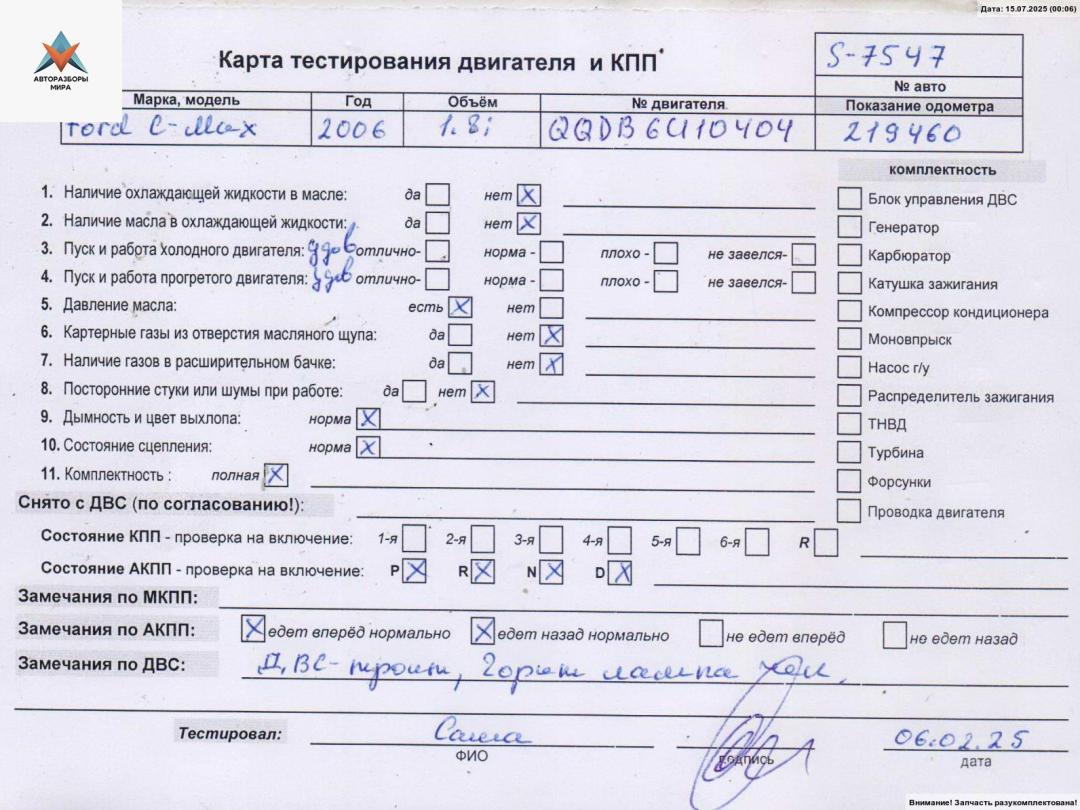 Дата: 15.07.2025 (00:06)
АВТОРАЗБОРЫ
МИРА
Карта тестирования двигателя и КПП
S-7547
№ авто
Марка, модель Год Объём № двигателя Показание одометра
Ford C-Max 2006 1.8i QQDB 6U10404 219460
комплектность
1. Наличие охлаждающей жидкости в масле: да нет X Блок управления ДВС
2. Наличие масла в охлаждающей жидкости: да нет X Генератор
3. Пуск и работа холодного двигателя: удов отлично- норма - плохо - не завелся- Карбюратор
4. Пуск и работа прогретого двигателя: удов отлично- норма - плохо - не завелся- Катушка зажигания
5. Давление масла: есть X нет Компрессор кондиционера
6. Картерные газы из отверстия масляного щупа: да нет X Моновпрыск
7. Наличие газов в расширительном бачке: да нет X Насос г/у
8. Посторонние стуки или шумы при работе: да нет X Распределитель зажигания
9. Дымность и цвет выхлопа: норма X ТНВД
10. Состояние сцепления: норма X Турбина
11. Комплектность : полная X Форсунки
Снято с ДВС (по согласованию!): Проводка двигателя
Состояние КПП - проверка на включение: 1-я 2-я 3-я 4-я 5-я 6-я R
Состояние АКПП - проверка на включение: P X R X N X D X
Замечания по МКПП:
Замечания по АКПП: X едет вперёд нормально X едет назад нормально не едет вперёд не едет назад
Замечания по ДВС: ДВС-троит, Горит лампа
Тестировал: Саша 06.02.25
ФИО подпись дата
Внимание! Запчасть разукомплектована!